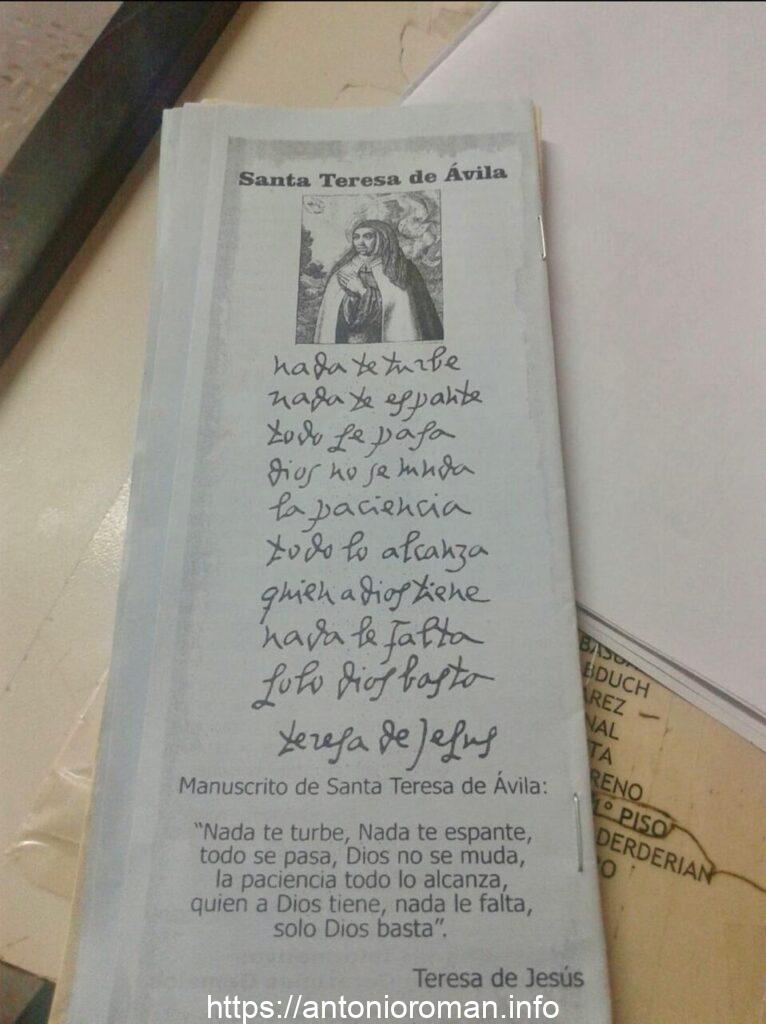 Santa Teresa de Ávila
nada te turbe
nada te espante
todo se pasa
dios no se muda
la paciencia
todo lo alcanza
quien a dios tiene
nada le falta
solo dios basta
teresa de Jesus
Manuscrito de Santa Teresa de Ávila:
“Nada te turbe, Nada te espante,
todo se pasa, Dios no se muda,
la paciencia todo lo alcanza,
quien a Dios tiene, nada le falta,
solo Dios basta”.
Teresa de Jesús
BDUCH
AREZ
NAL
TA
RENO
1° PISO
DERDERIAN
O
https://antonioroman.info